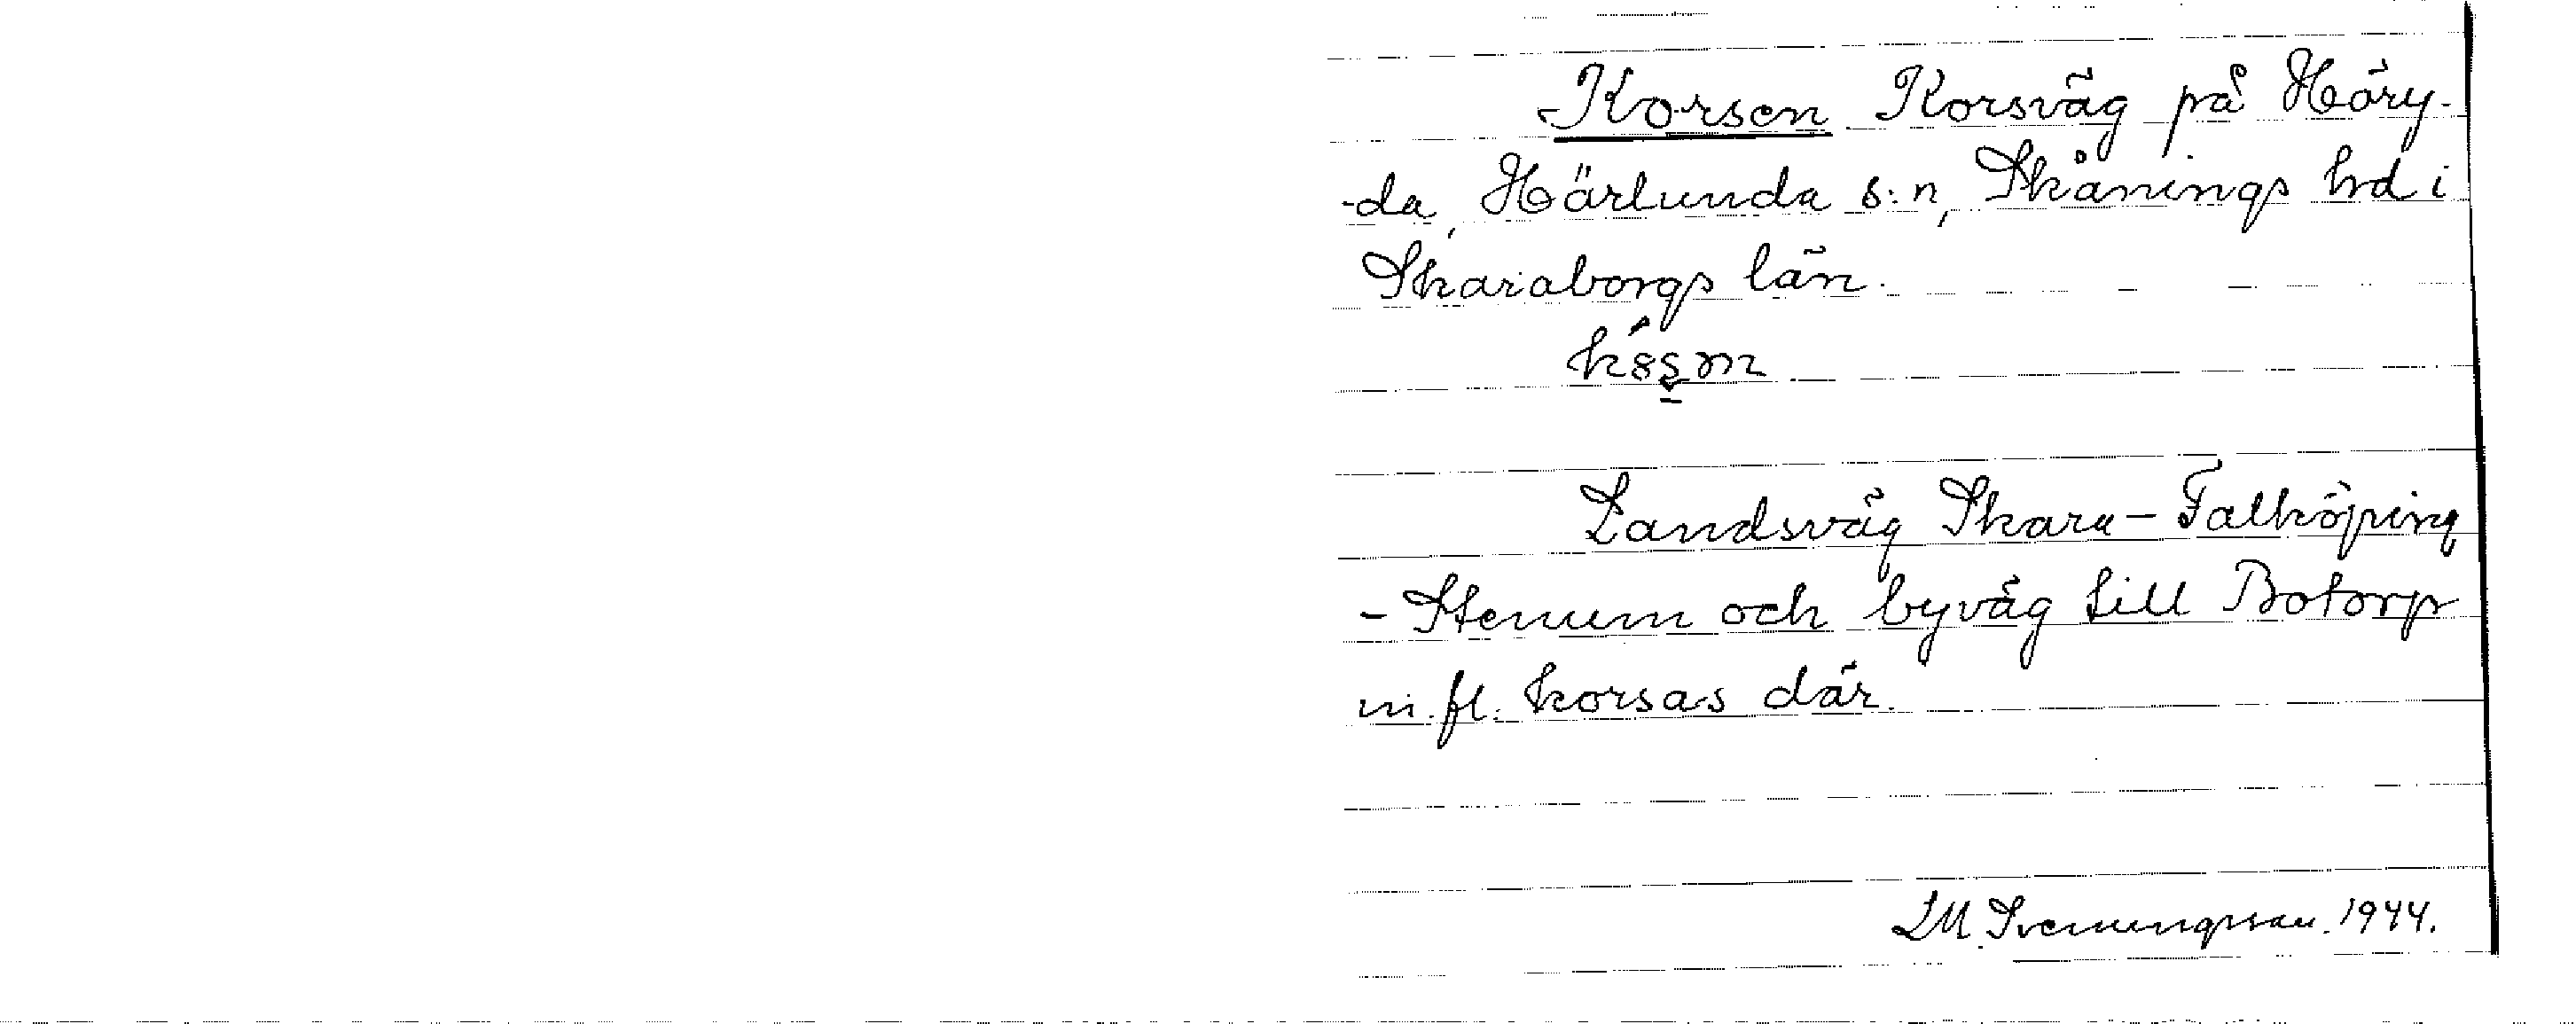 Korsen Korsväg på Häry-
-da, Härlunda s:n, Skånings hd i
Skaraborgs län.
Landsväg Skara-Falköping
- Stenum och byväg till Botorp
m.fl. korsas där.
LM. Svenungsson. 1944.